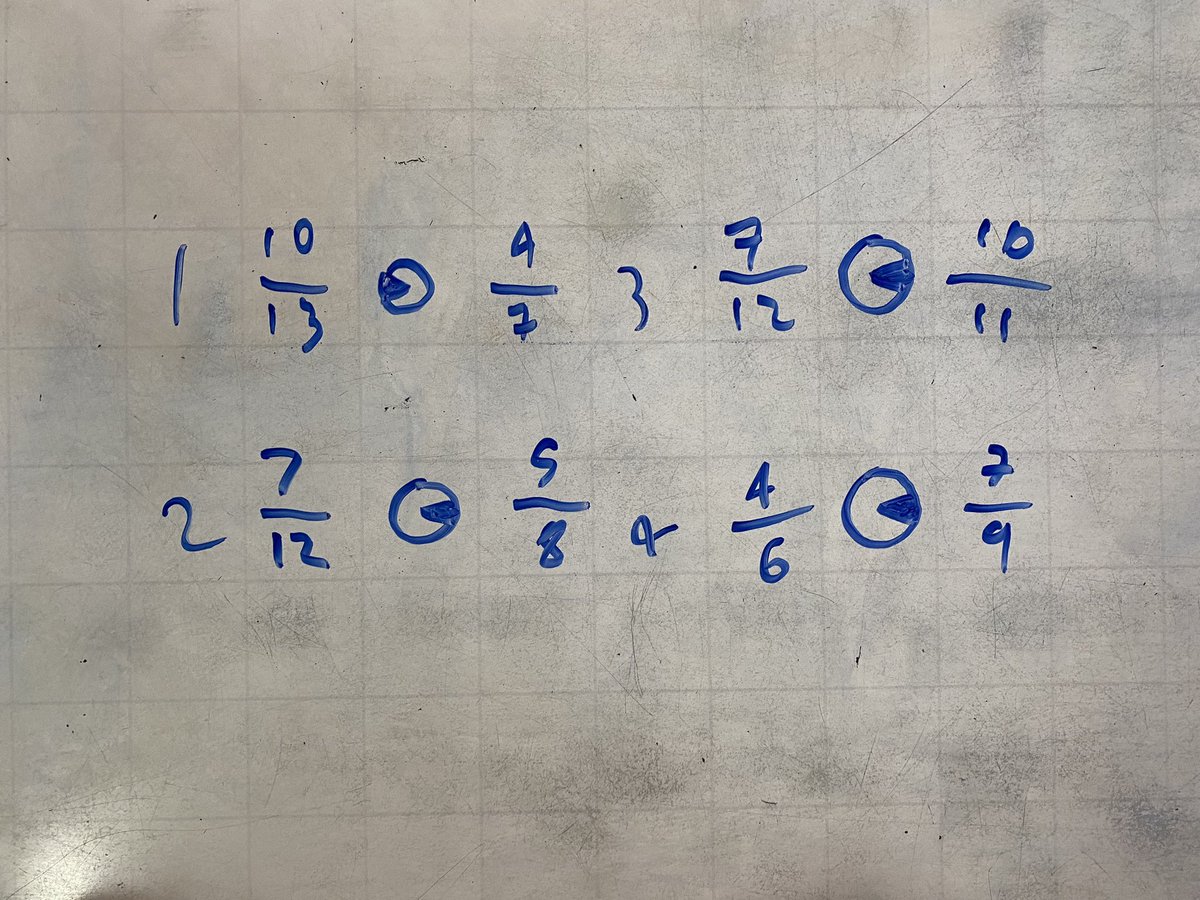 1 10/13 > 4/7 3 7/12 < 10/11
2 7/12 < 5/8 4 4/6 < 7/9